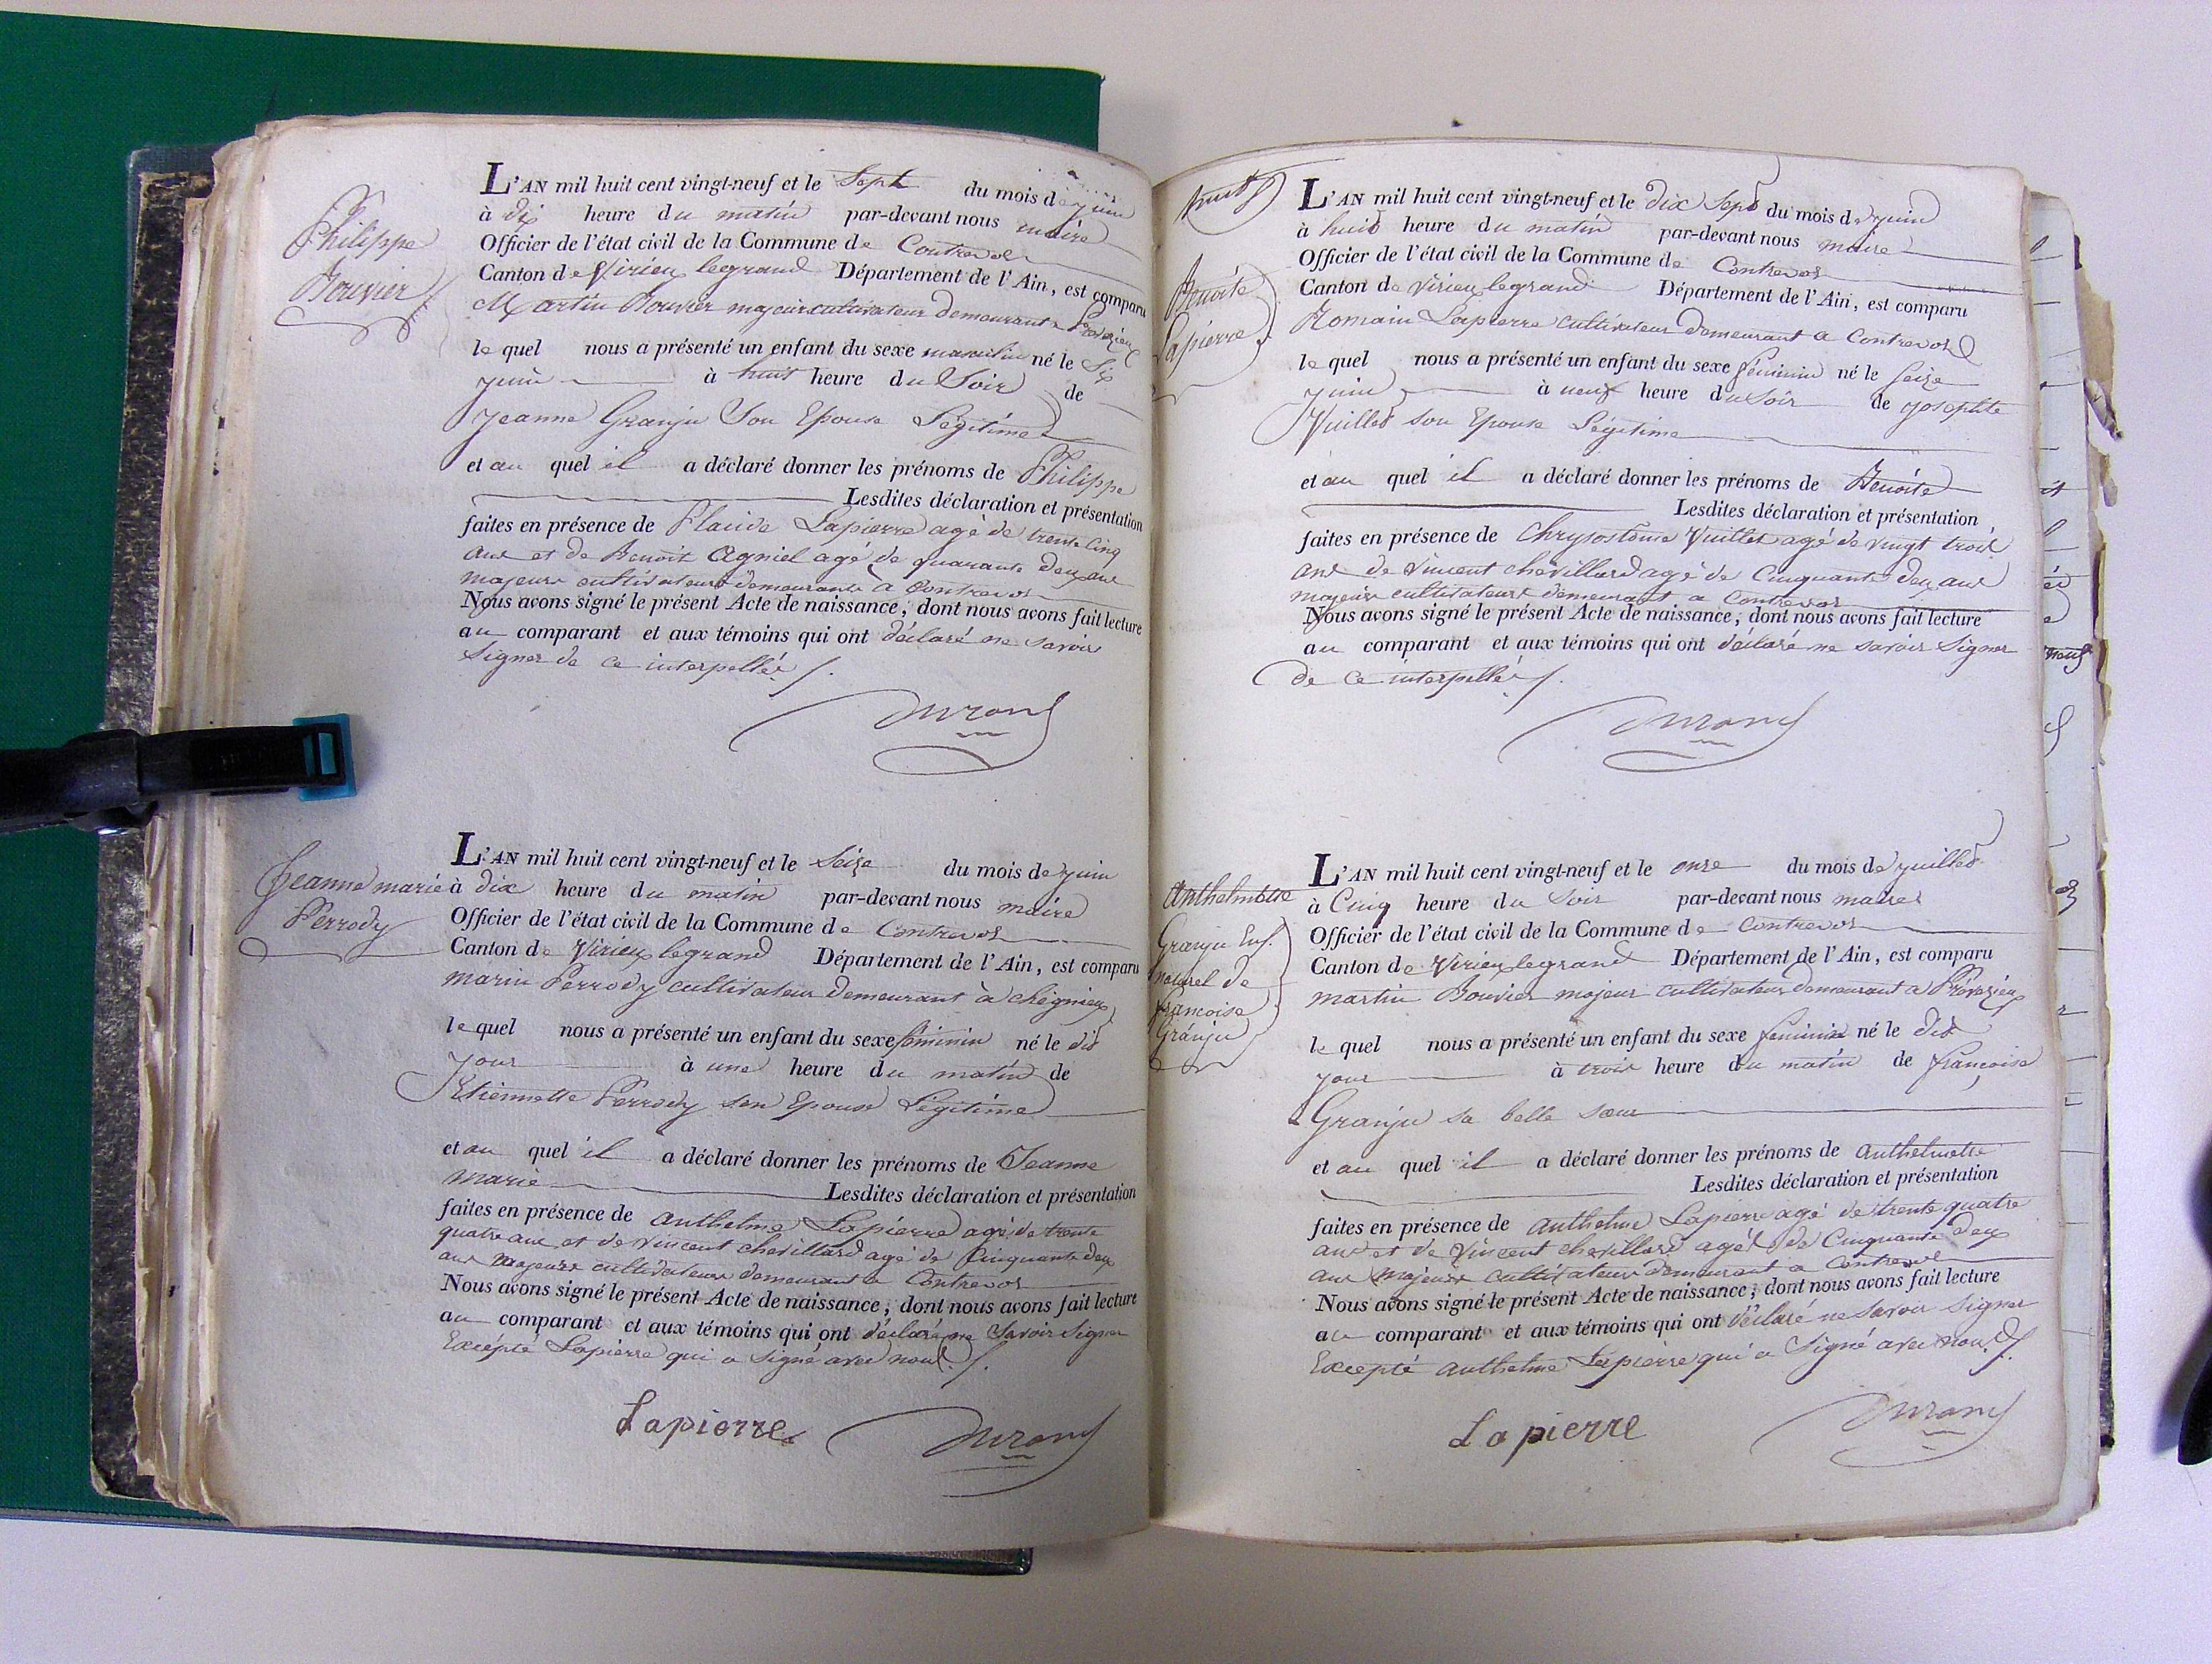 Philippe
Bouvier
L'AN mil huit cent vingt-neuf et le Sept du mois de juin
à dix heure du matin par-devant nous maire
Officier de l'état civil de la Commune de Contrevos
Canton de Virieu legrand Département de l'Ain, est comparu
Martin Bouvier majeur cultivateur demeurant a Provezieu
le quel nous a présenté un enfant du sexe masculin né le Six
juin à huit heure du Soir de
Jeanne Granju Son Epouse Légitime
et au quel il a déclaré donner les prénoms de Philippe
Lesdites déclaration et présentation
faites en présence de Placide Lapierre agé de trente Cinq
ans et de Benoit Agniel agé de quarante deux ans
majeurs cultivateurs demeurants à Contrevos
Nous avons signé le présent Acte de naissance, dont nous avons fait lecture
au comparant et aux témoins qui ont déclaré ne savoir
Signer de ce interpellés
Durand
Jeanne marie
Perrody
L'AN mil huit cent vingt-neuf et le Seize du mois de juin
à dix heure du matin par-devant nous maire
Officier de l'état civil de la Commune de Contrevos
Canton de Virieu legrand Département de l'Ain, est comparu
marin Perrody cultivateur demeurant à chégnieu
le quel nous a présenté un enfant du sexe féminin né le dit
jour à une heure du matin de
Etiennette Perrody son Epouse Légitime
et au quel il a déclaré donner les prénoms de Jeanne
Marie Lesdites déclaration et présentation
faites en présence de anthelme Lapierre agé de trente
quatre ans et de Vincent chevillard agé de Cinquante deux
ans majeurs cultivateurs demeurant a Contrevos
Nous avons signé le présent Acte de naissance, dont nous avons fait lecture
au comparant et aux témoins qui ont déclaré ne Savoir Signer
Excépté Lapierre qui a signé avec nous
Lapierre Durand
Benoite
Lapierre
L'AN mil huit cent vingt-neuf et le dix Sept du mois de juin
à huit heure du matin par-devant nous maire
Officier de l'état civil de la Commune de Contrevos
Canton de Virieu legrand Département de l'Ain, est comparu
Romain Lapierre cultivateur demeurant a Contrevos
le quel nous a présenté un enfant du sexe féminin né le seize
juin à neuf heure du Soir de josephte
Vuillet son Epouse Légitime
et au quel il a déclaré donner les prénoms de Benoite
Lesdites déclaration et présentation
faites en présence de Chrysostôme Vuillet agé de vingt trois
ans de Vincent chevillard agé de Cinquante deux ans
majeurs cultivateurs demeurant a Contrevos
Nous avons signé le présent Acte de naissance, dont nous avons fait lecture
au comparant et aux témoins qui ont déclaré ne savoir Signer
de ce interpellés
Durand
Anthelmette
Granju Enf.
naturel de
françoise
Granju
L'AN mil huit cent vingt-neuf et le onse du mois de juillet
à Cinq heure du Soir par-devant nous maire
Officier de l'état civil de la Commune de Contrevos
Canton de Virieu legrand Département de l'Ain, est comparu
martin Bouvier majeur cultivateur demeurant a Provezieu
le quel nous a présenté un enfant du sexe feminin né le dit
jour à trois heure du matin de françoise
Granju sa belle sœur
et au quel il a déclaré donner les prénoms de anthelmette
Lesdites déclaration et présentation
faites en présence de anthelme Lapierre agé de trente quatre
ans et de Vincent chevillard agé de Cinquante deux
ans majeurs cultivateurs demeurant a Contrevos
Nous avons signé le présent Acte de naissance, dont nous avons fait lecture
au comparant et aux témoins qui ont déclaré ne Savoir Signer
Excepté anthelme Lapierre qui a Signé avec nous
Lapierre Durand